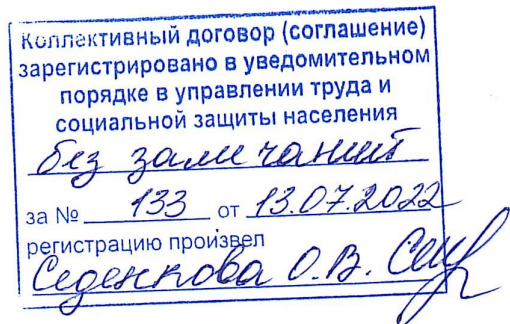 Коллективный договор (соглашение)
зарегистрировано в уведомительном
порядке в управлении труда и
социальной защиты населения
без замечаний
за № 133 от 13.07.2022
регистрацию произвел
Седенкова О.В.